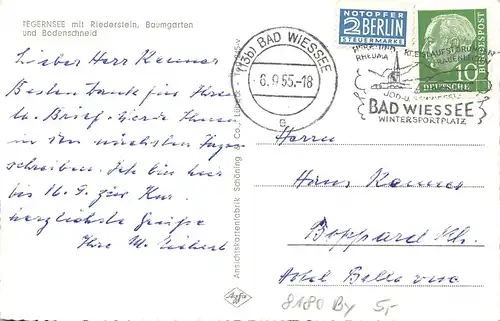 TEGERNSEE mit Riederstein, Baumgarten
und Bodenschneid
Lieber Herr Kemmer
Besten Dank für Ihre
u. Brief. werde Ihnen
in den nächsten Tagen
schreiben. Ich bin hier
bis 16. 9. zur Kur.
herzlichste Grüße
Ihre M.
Ansichtskartenfabrik Schöning & Co., Lübeck
Agfa
(13b) BAD WIESSEE
-6.9.55.-18
a
NOTOPFER
2 BERLIN
STEUERMARKE
RHEUMA
KREISLAUFSTÖRUNGEN
FRAUENLEIDEN
JOD-U.
BAD WIESSEE
WINTERSPORTPLATZ
DEUTSCHE BUNDESPOST
10
Herrn
Hans Kemmer
Boppard Rh.
Hotel Bellevue
8180 By 5,-